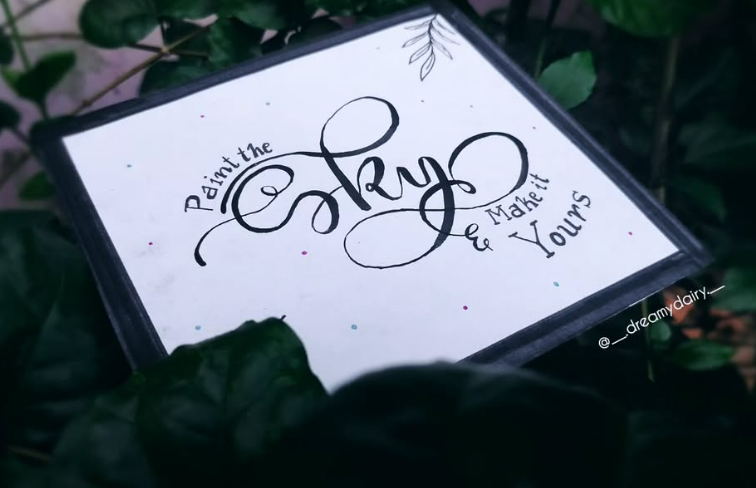 Paint the
Sky
& Make it
Yours
@__dreamydairy.__